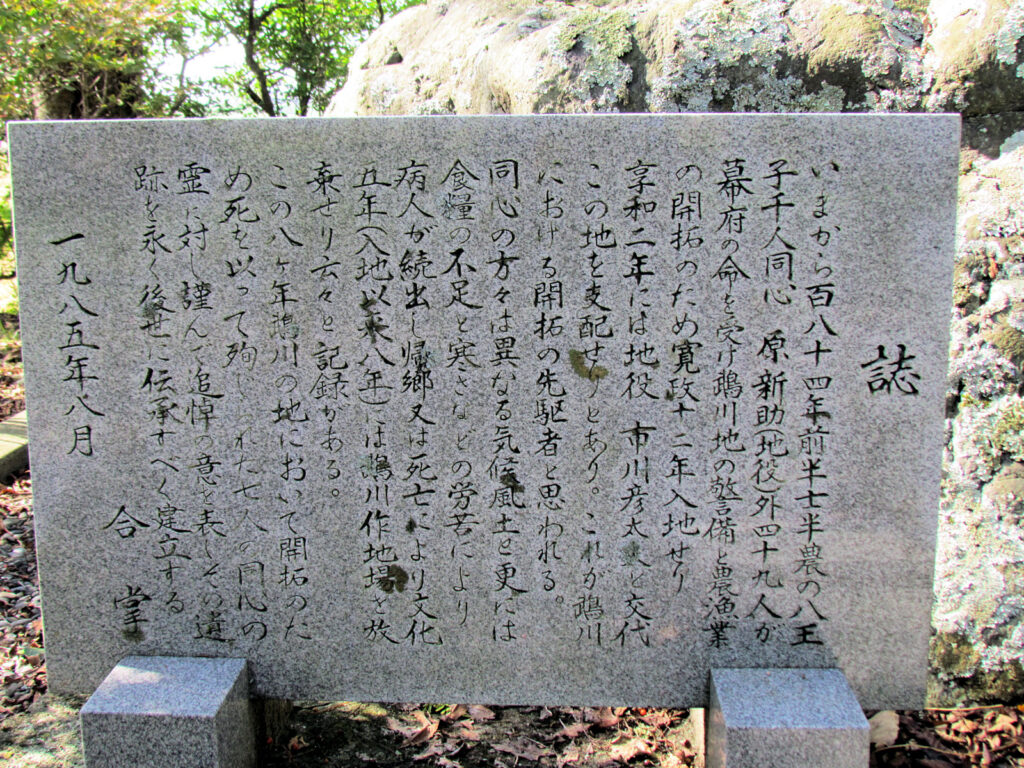 誌
いまから百八十四年前半士半農の八王
子千人同心　原新助地役外四十九人が
幕府の命を受け鵡川地の警備と農漁業
の開拓のため寛政十二年入地せり
享和二年には地役　市川彦太夫と交代
この地を支配せりとあり。これが鵡川
における開拓の先駆者と思われる。
同心の方々は異なる気候風土と更には
食糧の不足と寒さなどの労苦により
病人が続出し帰郷又は死亡により文化
五年(入地以来八年)には鵡川作地場を放
棄せり云々と記録がある。
この八ヶ年鵡川の地において開拓のた
め死を以って殉じられた七人の同心の
霊に対し謹んで追悼の意と表しその遺
跡を永く後世に伝承すべく建立する
合　掌
一九八五年八月